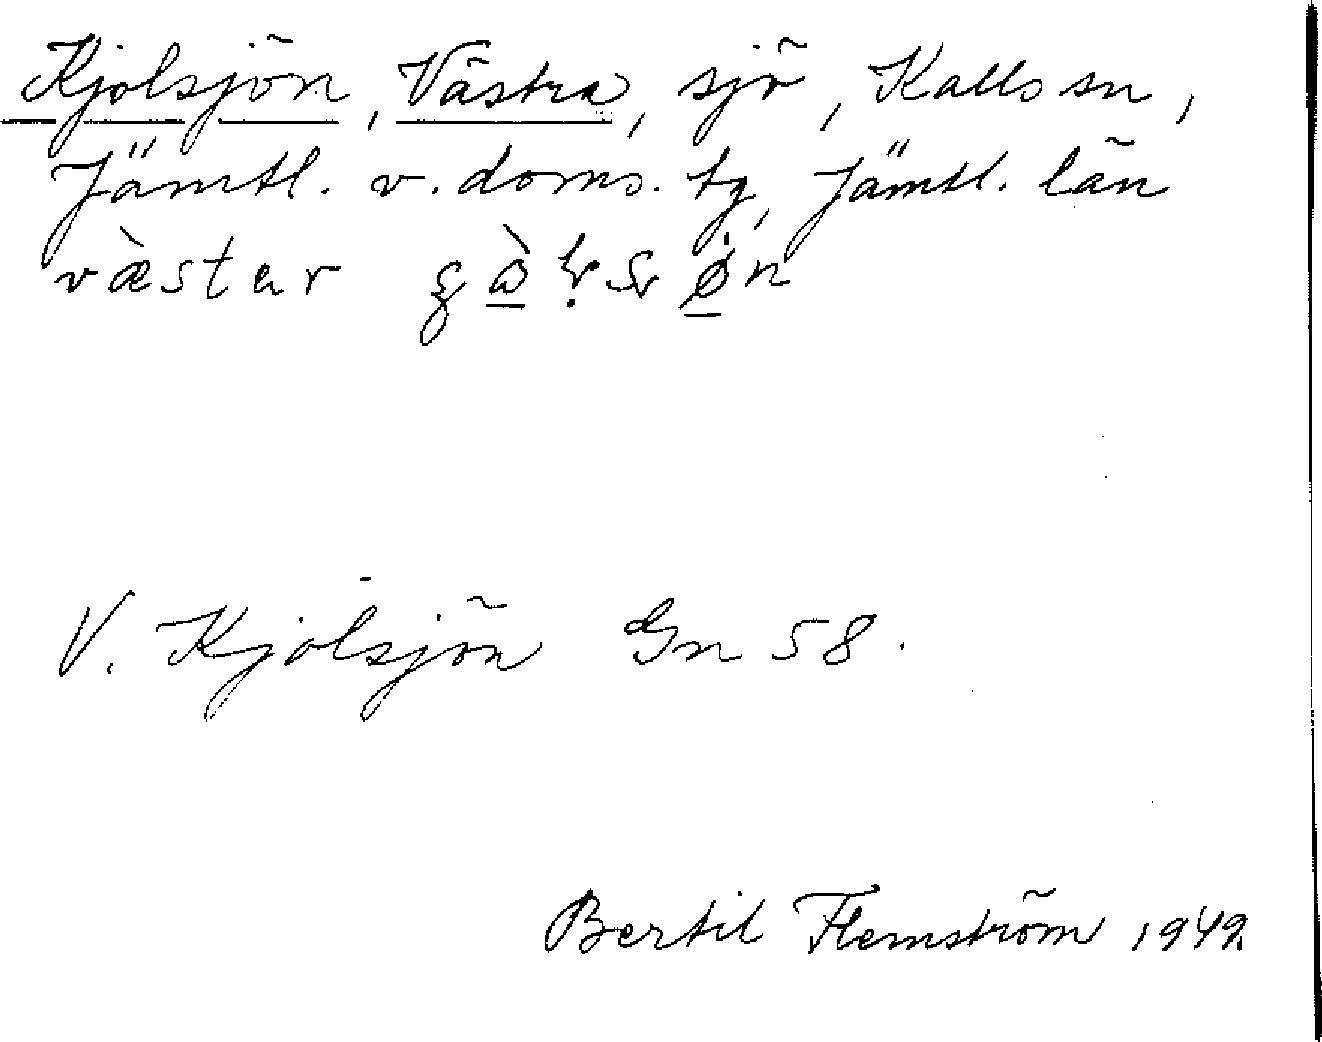 Kjolsjön, Västra, sjö, Kalls sn,
Jämtl. v. doms. tg, Jämtl. län
væ̀star
V. Kjolsjön Gn 58.
Bertil Flemström 1942